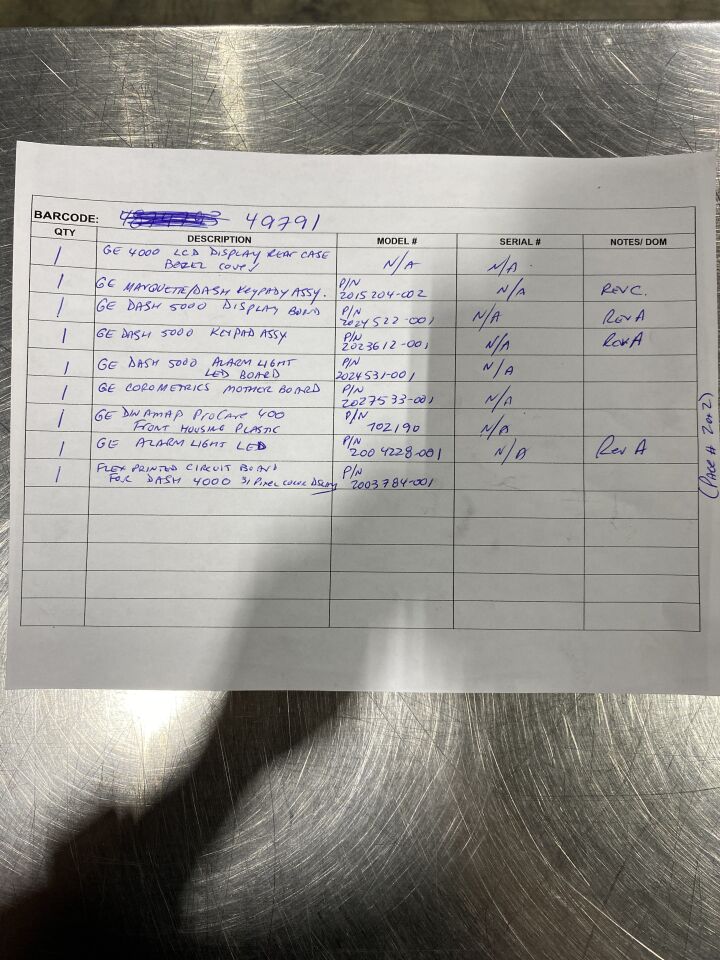 BARCODE: 49791
QTY DESCRIPTION MODEL # SERIAL # NOTES/ DOM
1 GE 4000 LCD DISPLAY REAR CASE N/A N/A
BEZEL COVER
1 GE MARQUETTE/DASH KEYPAD ASSY. P/N 2015204-002 N/A REV C.
1 GE DASH 5000 DISPLAY BOARD P/N 2024522-001 N/A REV A
1 GE DASH 5000 KEYPAD ASSY P/N 2023612-001 N/A REV A
1 GE DASH 5000 ALARM LIGHT P/N 2024531-001 N/A
LED BOARD
1 GE COROMETRICS MOTHER BOARD P/N 2027533-001 N/A
1 GE DINAMAP PROCARE 400 P/N 102190 N/A
FRONT HOUSING PLASTIC
1 GE ALARM LIGHT LED P/N 2004228-001 N/A Rev A
1 FLEX PRINTED CIRCUIT BOARD P/N 2003784-001
FOR DASH 4000 Pixel COLOR DISPLAY
(PAGE # 2 OF 2)